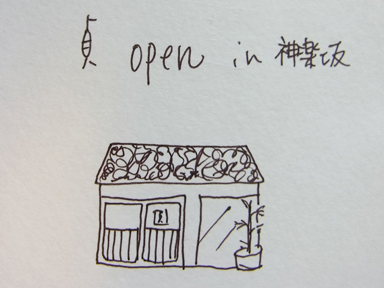 貞 open in 神楽坂